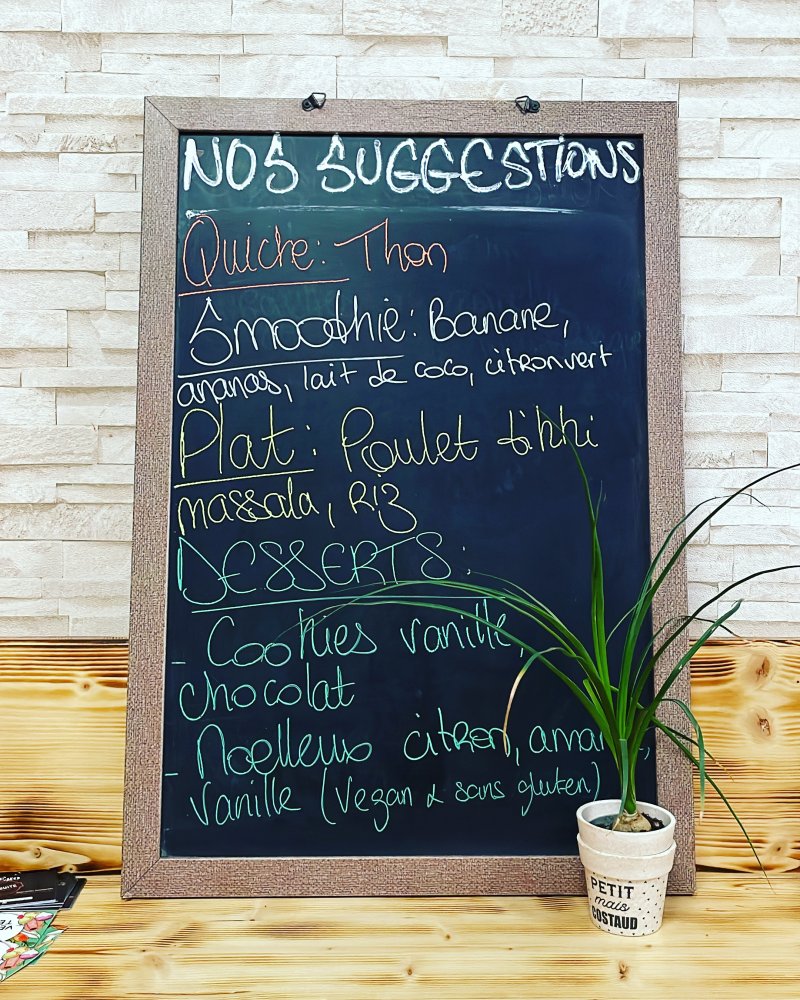 NOS SUGGESTIONS
Quiche: Thon
Smoothie: Banane,
ananas, lait de coco, citron vert
Plat: Poulet tikki
massala, Riz
DESSERTS:
- Cookies vanille,
chocolat
- Moelleux citron,
vanille (Vegan & sans gluten)
PETIT
mais
COSTAUD